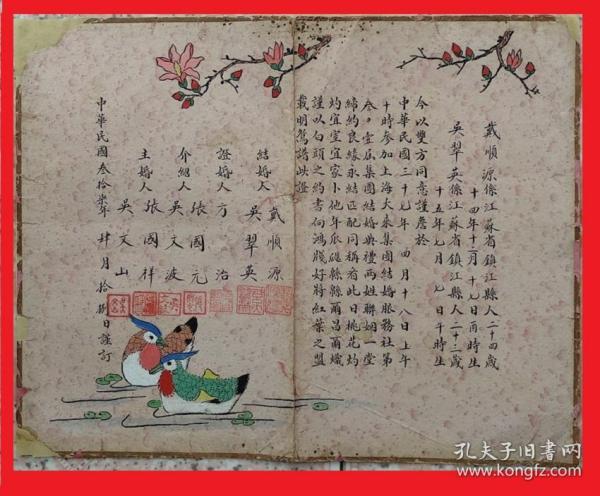 戴順源係江蘇省鎮江縣人二十四歲
十四年十一月十九日酉時生
吳翠英係江蘇省鎮江縣人二十三歲
十五年七月九日午時生
今以雙方同意謹詹於
中華民國三十七年四月十八日上午
十時參加上海大來集團結婚服務社第
叁〇壹屆集團結婚典禮兩姓聯姻一堂
締約良緣永結匹配同稱看此日桃花灼
灼宜室宜家卜他年瓜瓞緜緜爾昌爾熾
謹以白頭之約書向鴻牋好將紅葉之盟
載明鴛譜此證
結婚人 戴順源
吳翠英
證婚人 方治
介紹人 張國元
吳文波
主婚人 張國祥
吳文山
中華民國叁拾柒年肆月拾捌日謹訂
孔夫子旧书网
www.kongfz.com